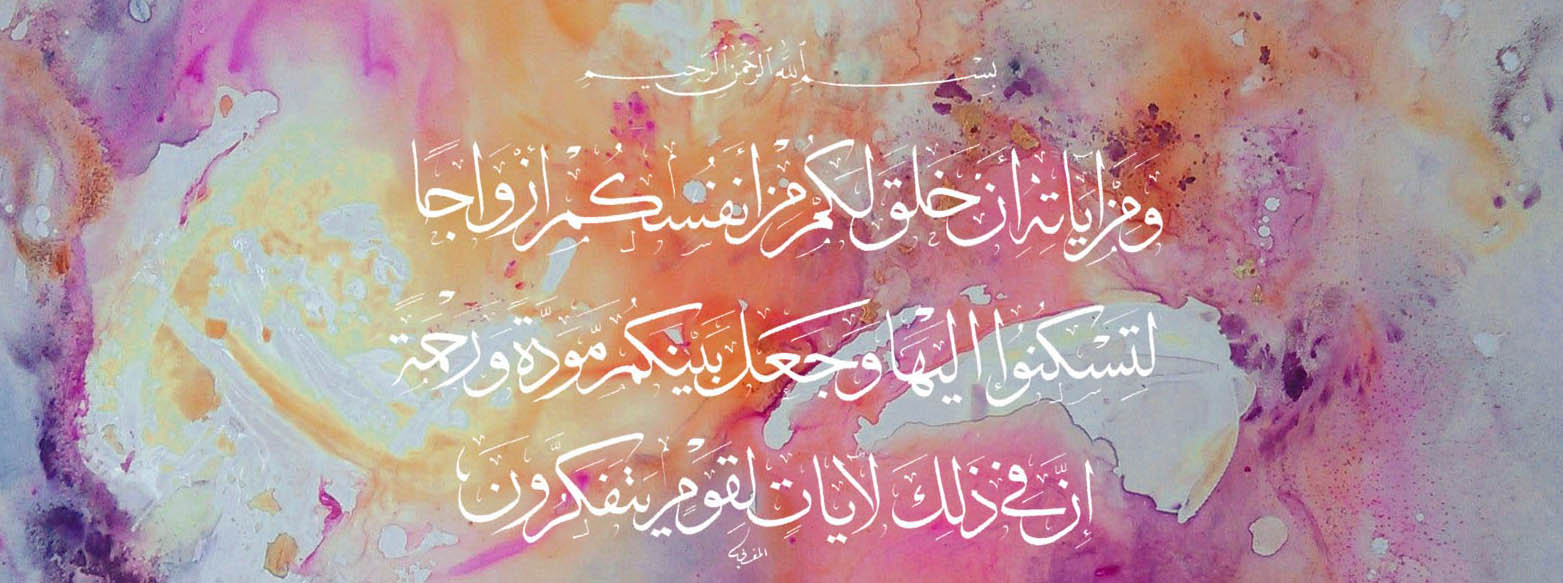 بِسْمِ اللهِ الرَّحْمٰنِ الرَّحِيمِ
وَمِنْ اٰيَاتِهِ أَنْ خَلَقَ لَكُمْ مِنْ أَنْفُسِكُمْ اَزْوَاجًا
لِتَسْكُنُوا اِلَيْهَا وَجَعَلَ بَيْنَكُمْ مَوَدَّةً وَرَحْمَةً
إِنَّ فِي ذَلِكَ لَاٰيَاتٍ لِقَوْمٍ يَتَفَكَّرُونَ